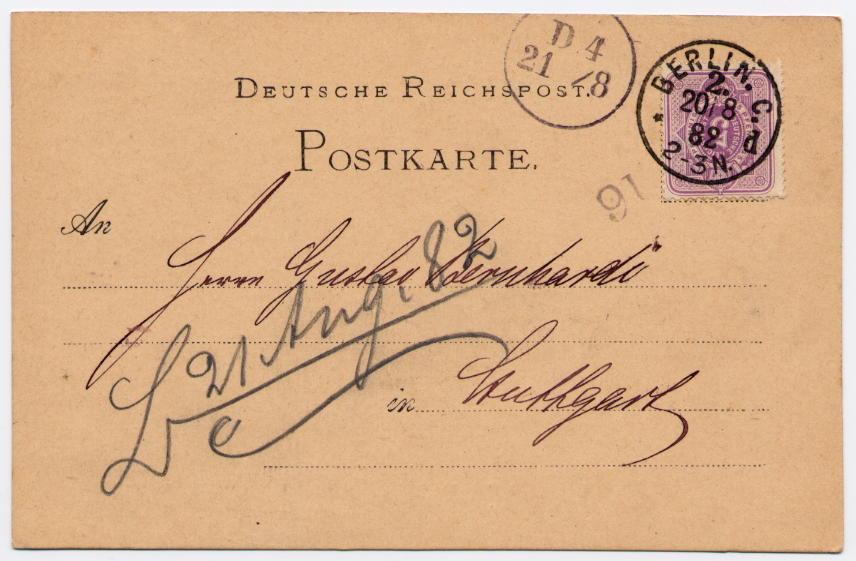 D 4
21 /8
DEUTSCHE REICHSPOST.
BERLIN. C.
2.
20/8
82
2-3N.
d
POSTKARTE.
16
An
Herrn Gustav Bernhardi
21 Aug. 82
in Stuttgart